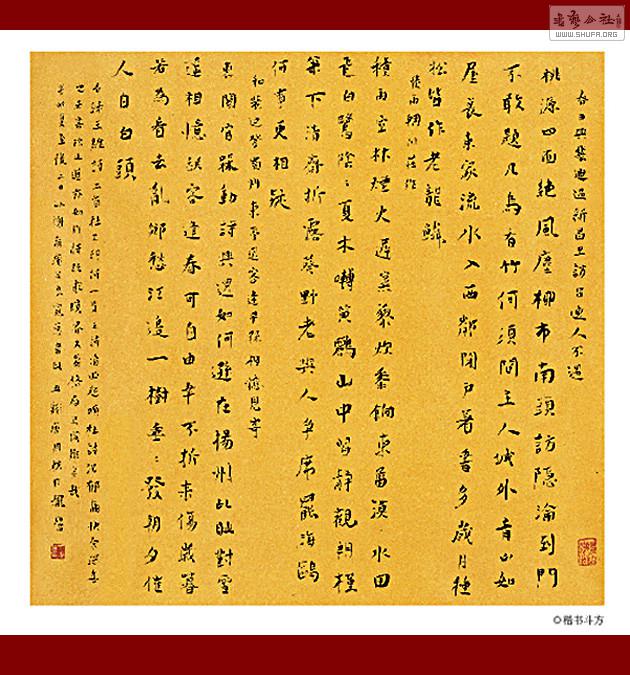 春日與裴迪過新昌里訪呂逸人不遇
桃源四面絕風塵柳市南頭訪隱淪到門
不敢題凡鳥看竹何須問主人城外青山如
屋裏東家流水入西鄰閉戶著書多歲月種
松皆作老龍鱗
積雨輞川莊作
積雨空林煙火遲蒸藜炊黍餉東菑漠〻水田
飛白鷺陰〻夏木囀黃鸝山中習靜觀朝槿
松下清齋折露葵野老與人爭席罷海鷗
何事更相疑
和裴迪登蜀州東亭送客逢早梅相憶見寄
東閣官梅動詩興還如何遜在揚州此時對雪
遙相憶送客逢春可自由幸不折來傷歲暮
若為看去亂鄉愁江邊一樹垂〻發朝夕催
人自白頭
右詩王維詩二首杜工部詩一首
WWW.SHUFA.ORG
©楷书斗方